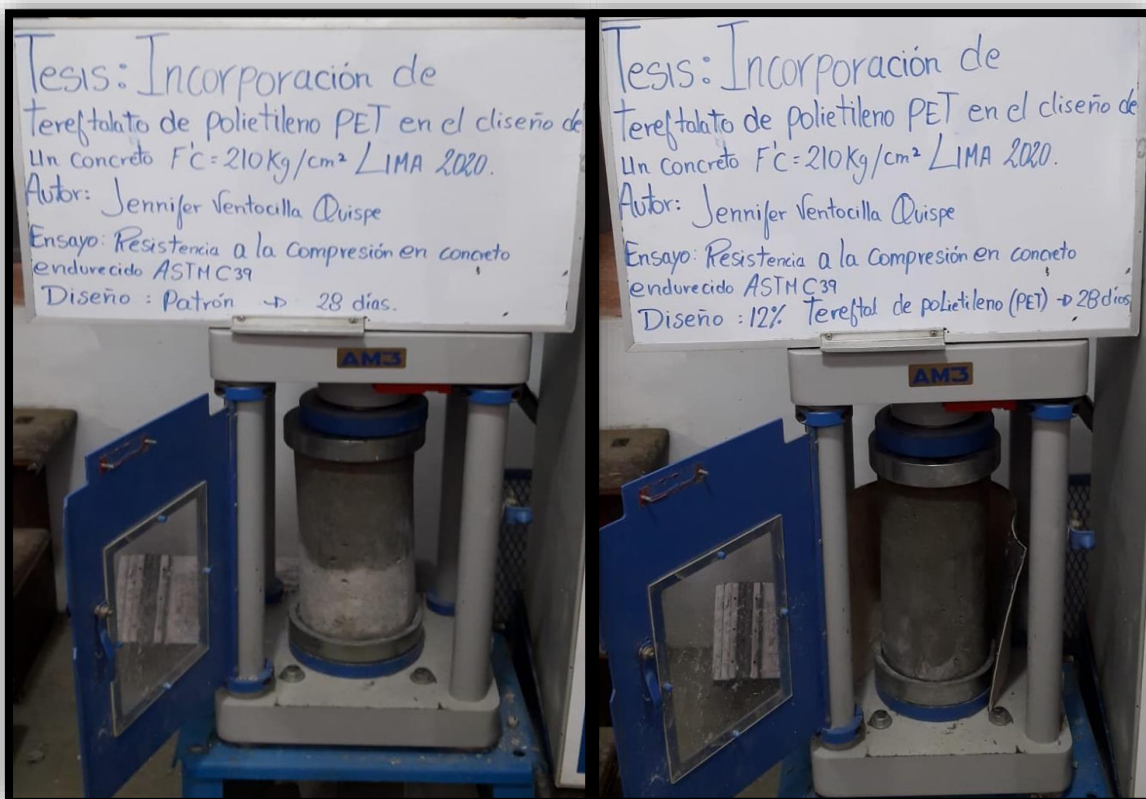 Tesis: Incorporación de
tereftalato de polietileno PET en el diseño de
un concreto F'c = 210 Kg/cm² LIMA 2020.
Autor: Jennifer Ventocilla Quispe
Ensayo: Resistencia a la compresión en concreto
endurecido ASTM C39
Diseño : Patrón → 28 días.
AM3
Tesis: Incorporación de
tereftalato de polietileno PET en el diseño de
un concreto F'c = 210 Kg/cm² LIMA 2020.
Autor: Jennifer Ventocilla Quispe
Ensayo: Resistencia a la compresión en concreto
endurecido ASTM C39
Diseño : 12% Tereftal de polietileno (PET) → 28 días
AM3